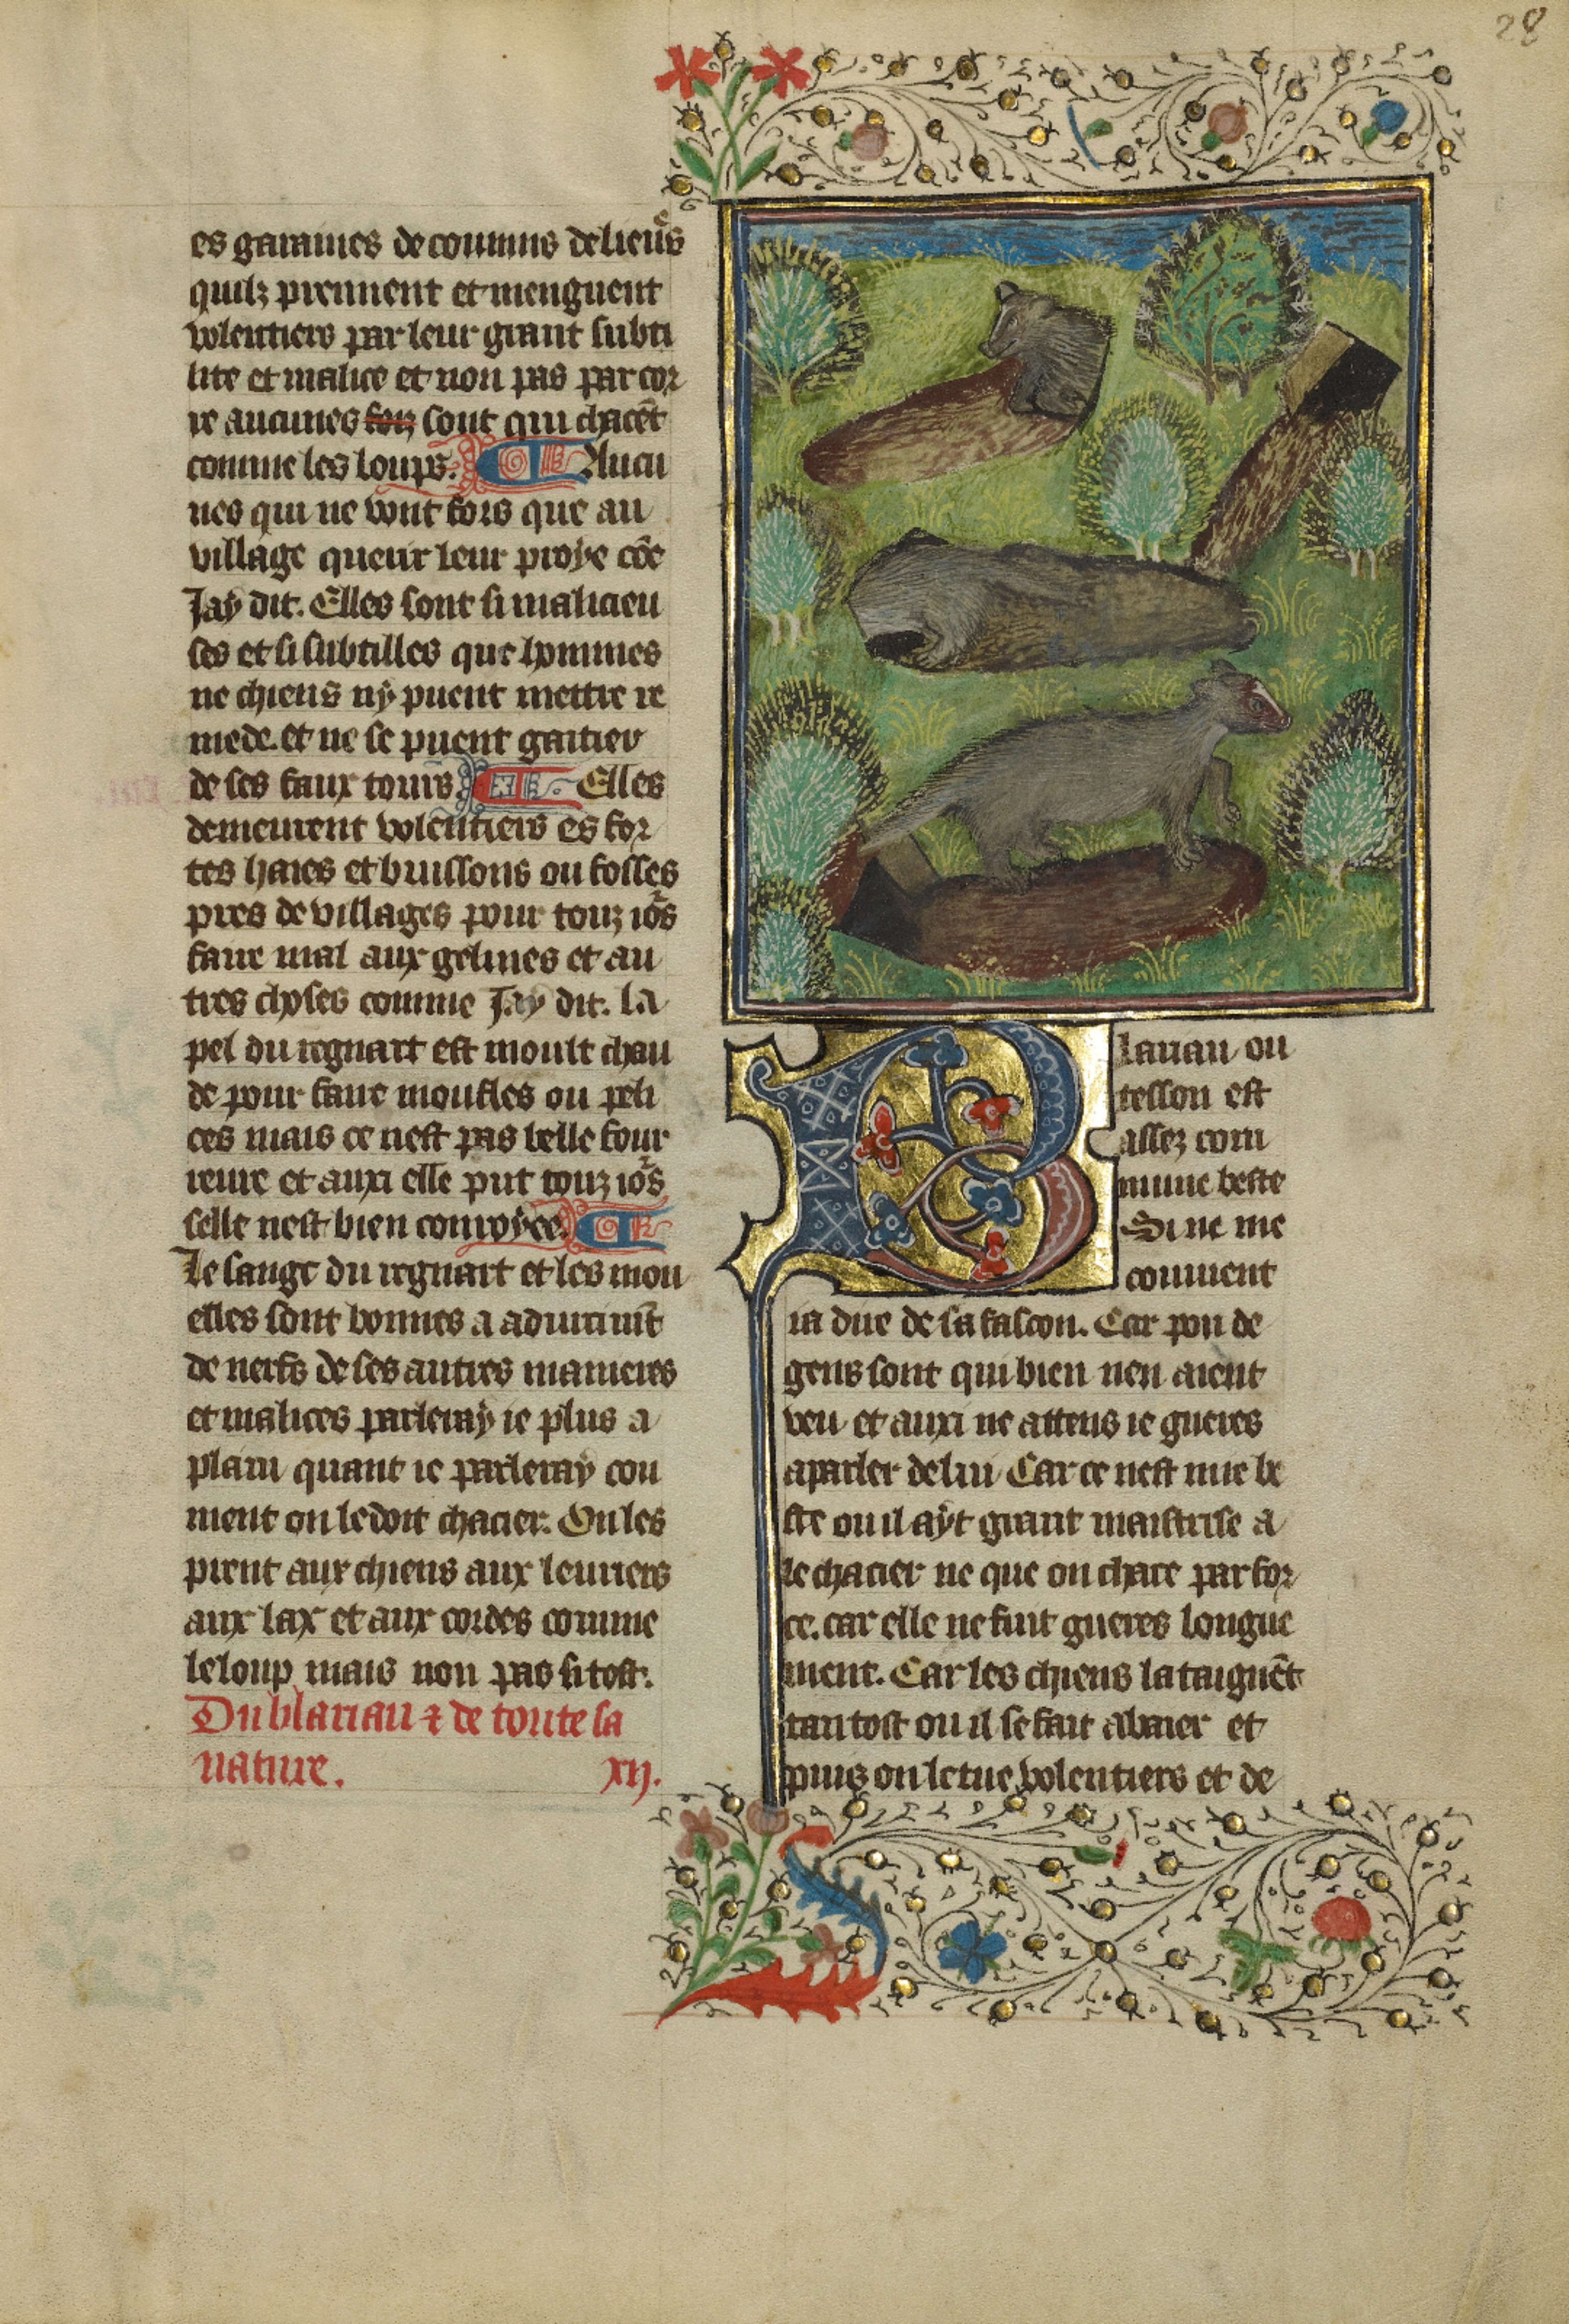 28
es garannes de connins de lieurs
quilz prennent et menguent
volentiers par leur grant subti
lite et malice et non pas par cor
re aucunes foiz sont qui chacēt
comme les loups. Aucu
nes qui ne vont fors que au
village querir leur proye cōe
Jay dit. Elles sont si malicieu
ses et si subtilles que hommes
ne chiens ny puent mettre re
mede. et ne se puent gaitier
de ses faux tours. Elles
demeurent volentiers es for
tes haies et buissons ou fosses
pres de villages pour touz iors
faire mal aux gelines et au
tres choses comme Jay dit. la
pel du regnart est moult chau
de pour faire moufles ou peli
ces mais ce nest pas belle four
reure et auxi elle put touz iors
selle nest bien conroyee.
Le sanc du regnart et les mou
elles sont bonnes a
de nerfs de ses autres manieres
et malices parleray ie plus a
plain quant ie parleray con
ment on le doit chacier. On les
prent aux chiens aux leuriers
aux lax et aux cordes comme
le loup mais non pas si tost.
Du blariau ⁊ de toute sa
nature. xij.
Blariau ou
tesson est
assez com
mune beste
Si ne me
conuient
ia dire de sa fascon. Car pou de
gens sont qui bien nen aient
veu et auxi ne attens ie gueres
a parler de lui Car ce nest mie be
ste ou il ayt grant maistrise a
le chacier ne que on chace par for
ce. car elle ne fuit gueres longue
ment. Car les chiens lataignēt
tantost ou il se fait abaier et
puis on le tue volentiers et de